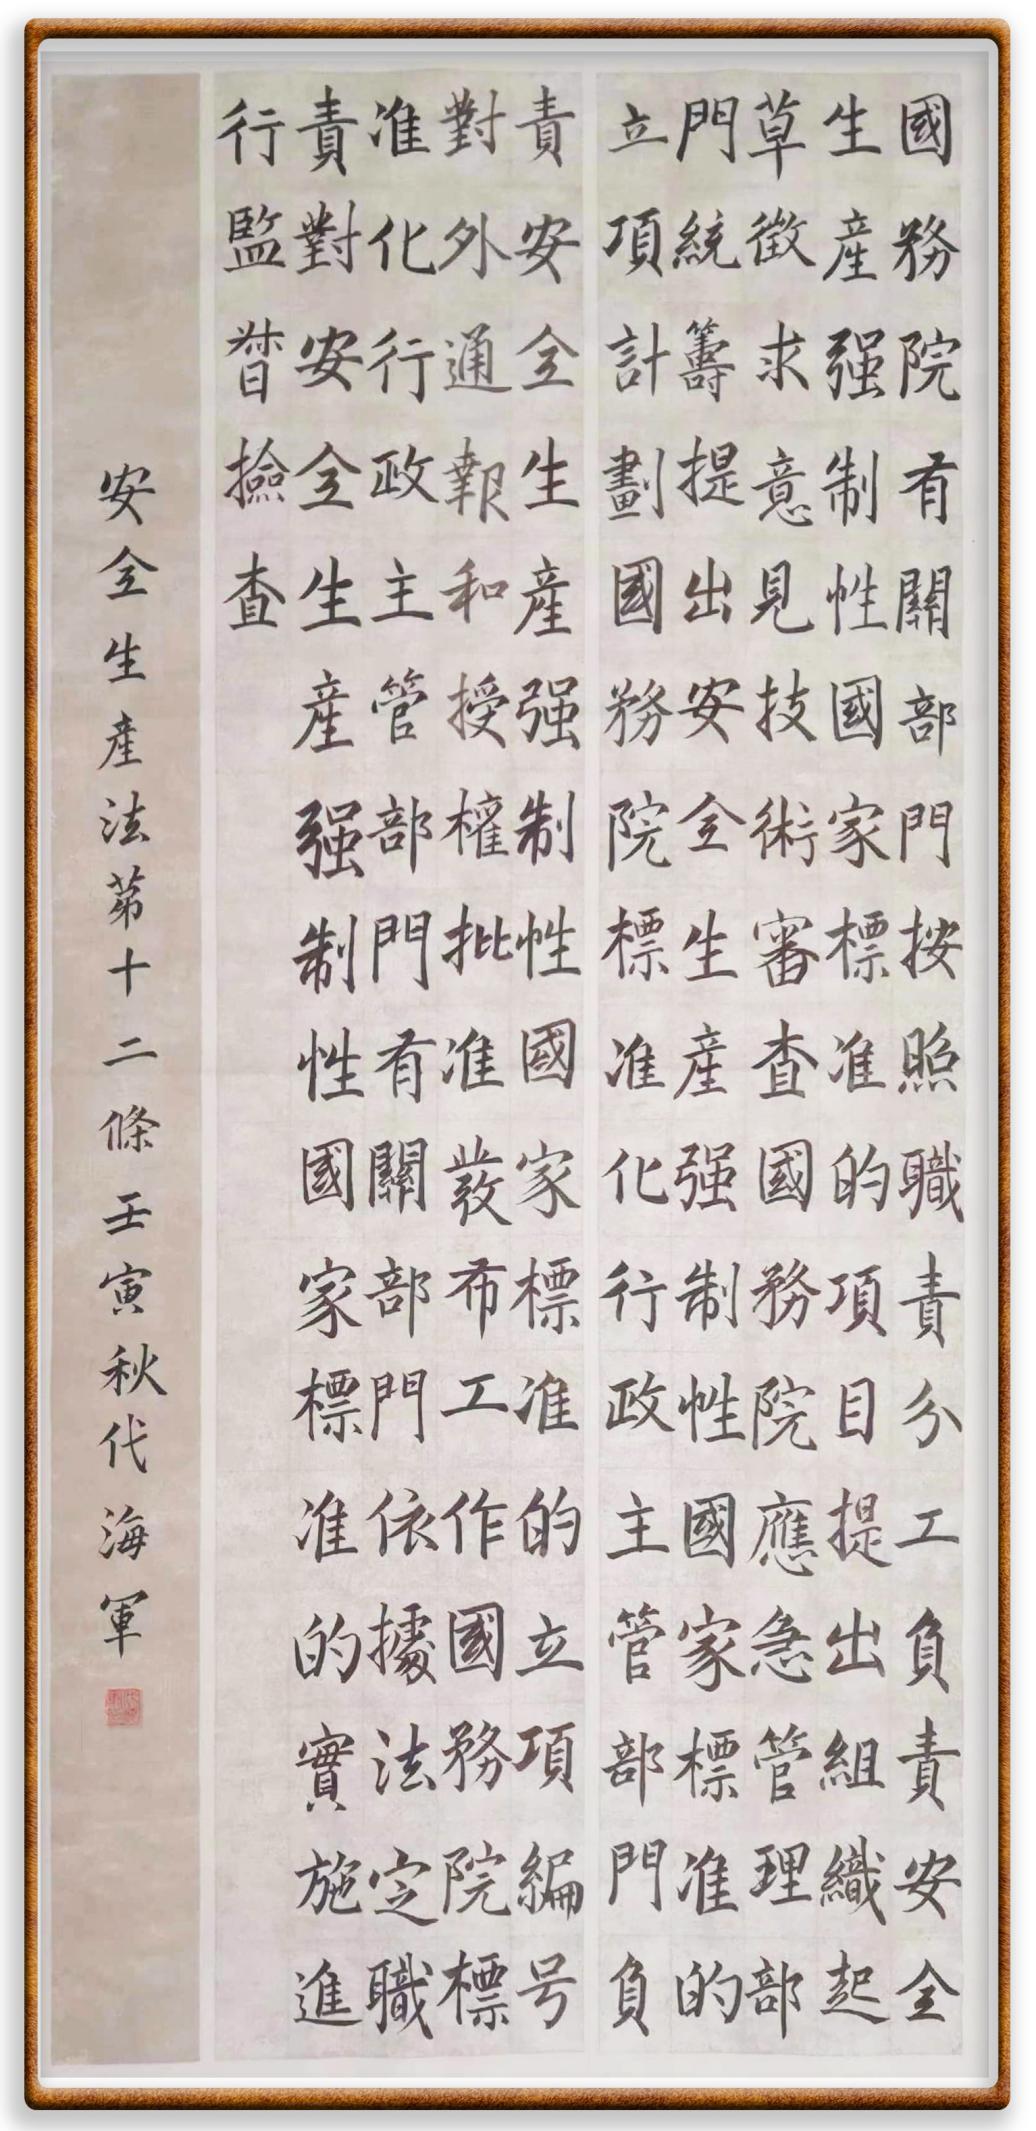 國務院有關部門按照職責分工負責安全
生産强制性國家標准的項目提出組織起
草徵求意見技術審查國務院應急管理部
門統籌提出安全生産强制性國家標准的
立項計劃國務院標准化行政主管部門負
責安全生産强制性國家標准的立項編号
對外通報和授權批准發布工作國務院標
准化行政主管部門有關部門依據法定職
責對安全生産强制性國家標准的實施進
行監督檢查
安全生産法第十二條壬寅秋代海軍